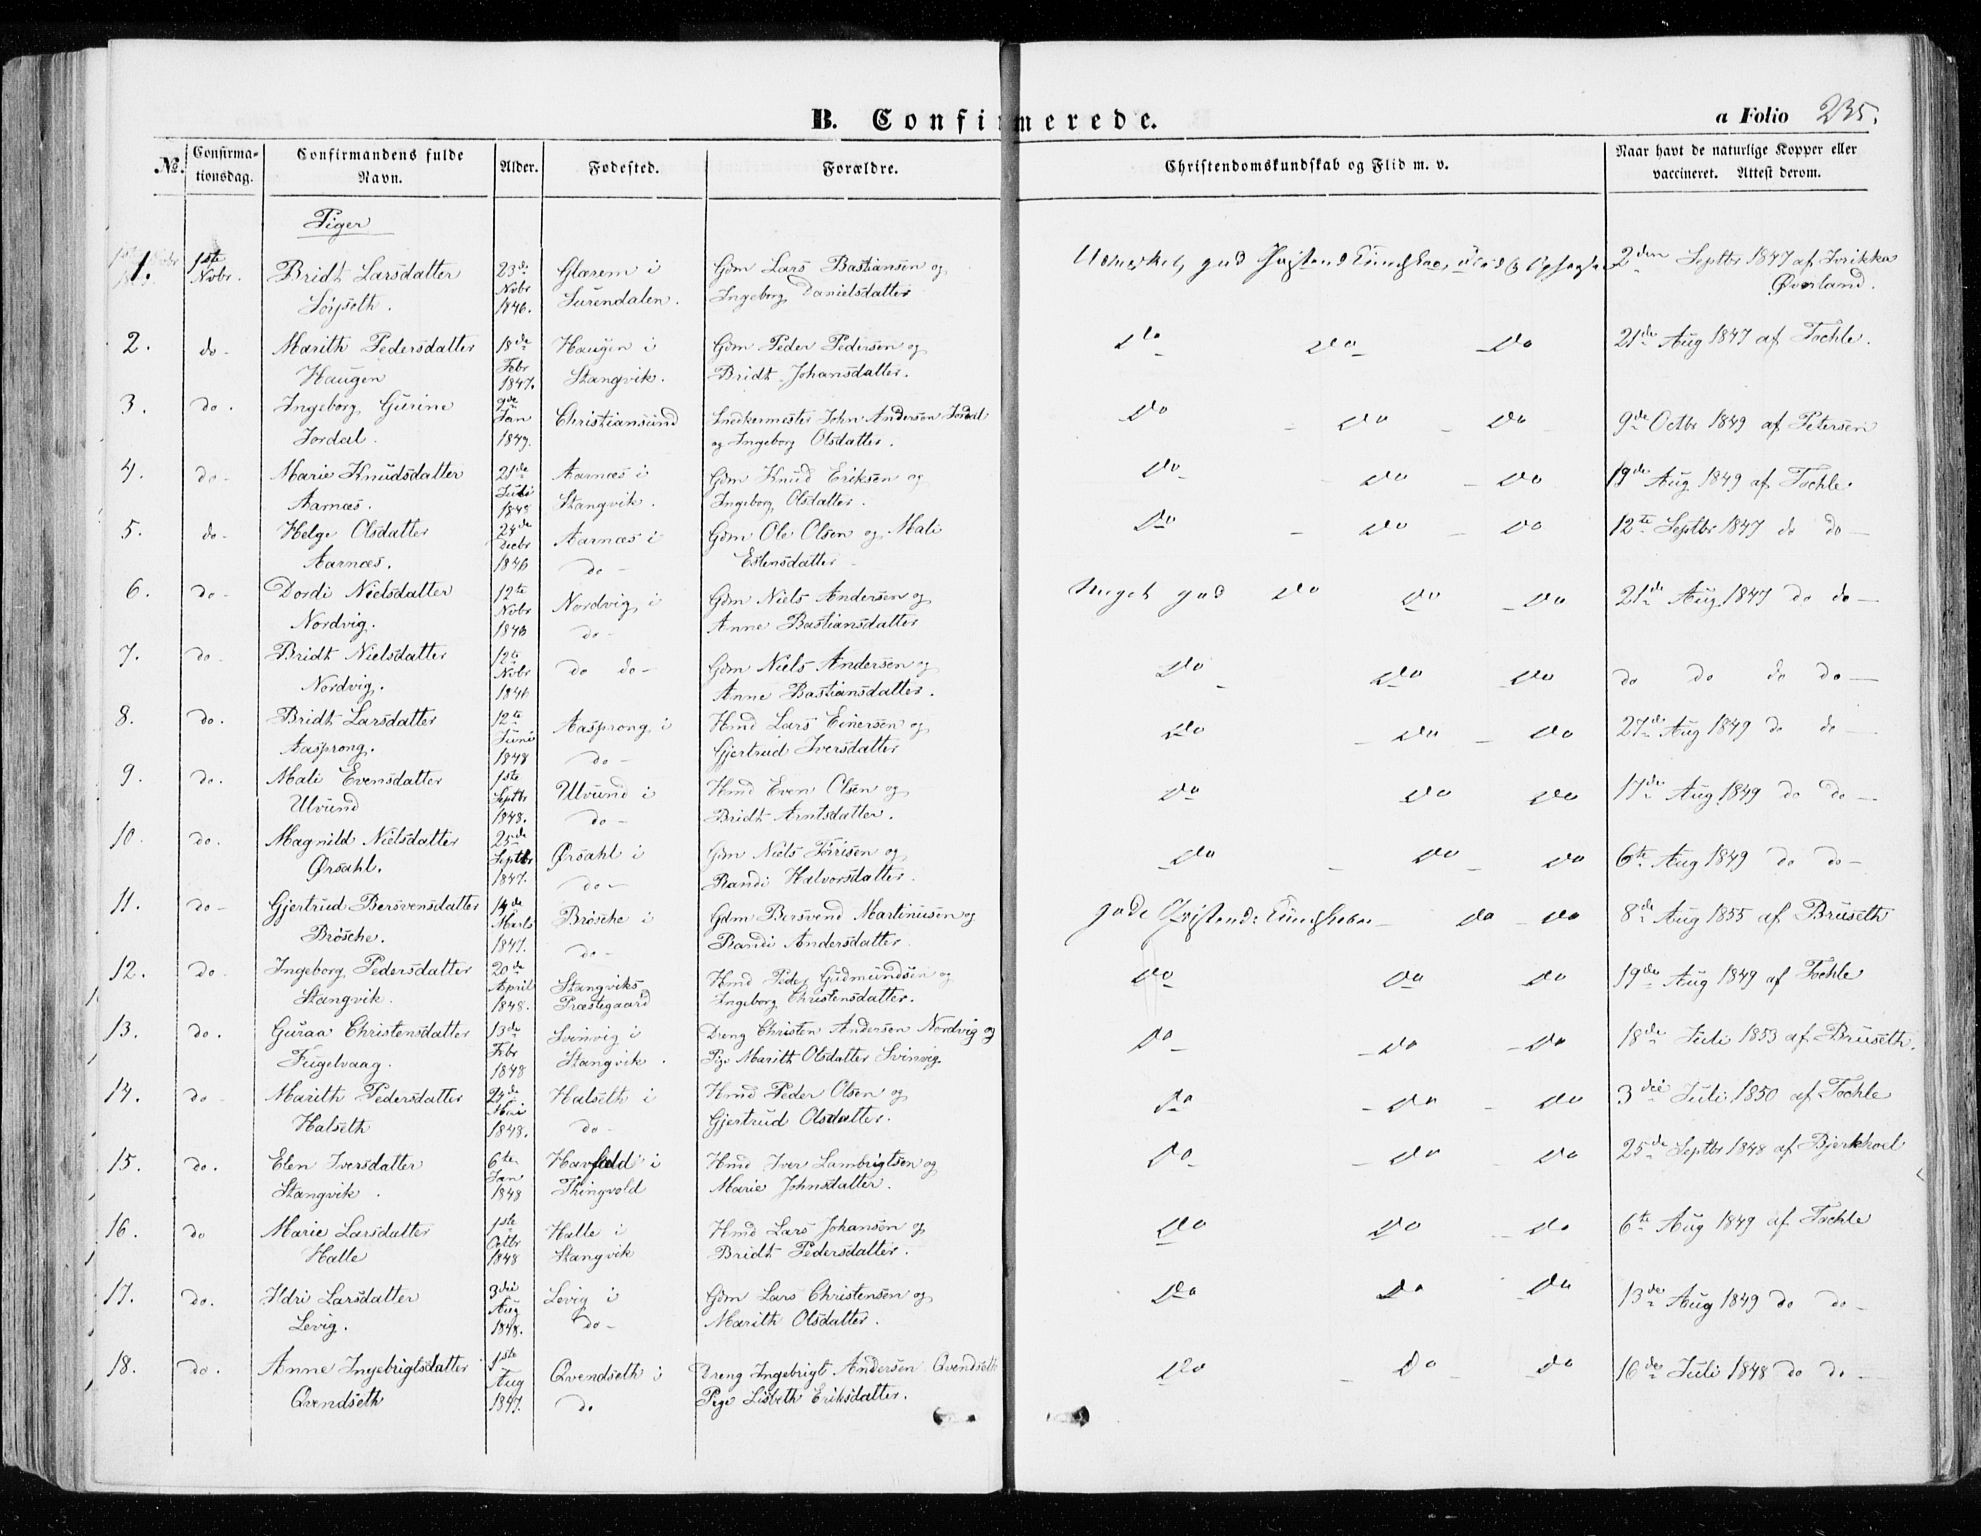 B. Confirmerede.
a Folio 235.
No. Confirmationsdag. Confirmandens fulde Navn. Alder. Fødested. Forældre. Christendomskundskab og Flid m. v. Naar havt de naturlige Kopper eller vaccineret. Attest derom.
Piger
1. 1ste Novbr. Bridt Larsdatter 23de Glærem i Gdm Lars Bastiansen og 2den Septbr 1847 af
Novbr 1846. Surendalen. Ingeborg Danielsdatter Øverland.
2. do - Marith Pedersdatter 18de Haugen i Gdm Peder Pedersen og do do do 21de Aug 1847 af Tochle.
Haugen Febr 1847. Stangvik. Bridt Johansdatter.
3. do. Ingeborg Gurine 9de Jan Christiansund Snedkermester John Andersen Jordal do do do 9de Octbr 1849 af Petersen
Jordal. 1849. og Ingeborg Olsdatter.
4. do - Marie Knudsdatter 21de Juli Aarnæs i Gdm Knud Eriksen og do do do 19de Aug 1849 af Tochle
Aarnæs. 1848 Stangvik. Ingeborg Olsdatter.
5. do - Helge Olsdatter 24de Decbr Aarnæs i Gdm Ole Olsen og Mali do do do 12te Septbr 1847 do do -
Aarnæs. 1846 do - Estensdatter
6. do - Dordi Nielsdatter 12te Novbr Nordvig i Gdm Niels Andersen og Meget god do do do 21de Aug 1847 do do -
Nordvig. 1846 do - Anne Bastiansdatter
7. do - Bridt Nielsdatter 12te Novbr do do - Gdm Niels Andersen og do do do do do do do -
Nordvig. 1846 Anne Bastiansdatter.
8. do. Bridt Larsdatter 12te Juni Aasprong i Hmd Lars Einersen og do do do 27de Aug 1849 do do -
Aasprong. 1848 do - Gjertrud Iversdatter
9. do. Mali Evensdatter 1ste Septbr Ulvund i Hmd Even Olsen og do do do 17de Aug 1849 do do -
Ulvund 1848. do - Bridt Arntsdatter.
10. do. Magnild Nielsdatter 25de Septbr Ørsahl i Gdm Niels og do do do 6te Aug 1849 do do -
Ørsahl. 1847. do - Randi Halvorsdatter.
11. do - Gjertrud Bersvensdatter 14de Marts Brøsche i Gdm Bersvend Martinusen og gode do do 8de Aug 1855 af Bruseth
Brøsche. 1847. do - Randi Andersdatter
12. do - Ingeborg Pedersdatter 20de April Stangviks Hmd Peder Gudmundsen og do do do 19de Aug 1849 af Tochle
Stangvik. 1848. Præstegaard Ingeborg Christensdatter.
13. do. Guraa Christensdatter 13de Febr Svinvig i Dreng Christen Andersen Nordvig og do do do 18de Juli 1853 af Bruseth.
Fugelvaag. 1848 Stangvik. Pige Marith Olsdatter Svinvig.
14. do - Marith Pedersdatter 24de Mai Halseth i Hmd Peder Olsen og do do do 3die Juli 1850 af Tochle
Halseth 1848. do - Gjertrud Olsdatter.
15. do. Elen Iversdatter 6te Jan i Hmd Iver Lambrigtsen og do do do 25de Septbr 1848 af
Stangvik. 1848 Thingvold Marie Johnsdatter.
16. do Marie Larsdatter 1ste Octbr Halle i Hmd Lars Johansen og do do do 6te Aug 1849 af Tochle
Halle 1848 Stangvik Bridt Pedersdatter.
17. do. Ildri Larsdatter 3die Aug Levig i Gdm Lars Christensen og do do do 13de Aug 1849 do do -
Levig. 1848. do - Marith Olsdatter.
18. do. Anne Ingebrigtsdatter 1ste Aug Qvendseth i Dreng Ingebrigt Andersen Qvendseth do do do 16de Juli 1848 do do -
Qvendseth 1847. do Pige Lisbeth Eriksdatter.